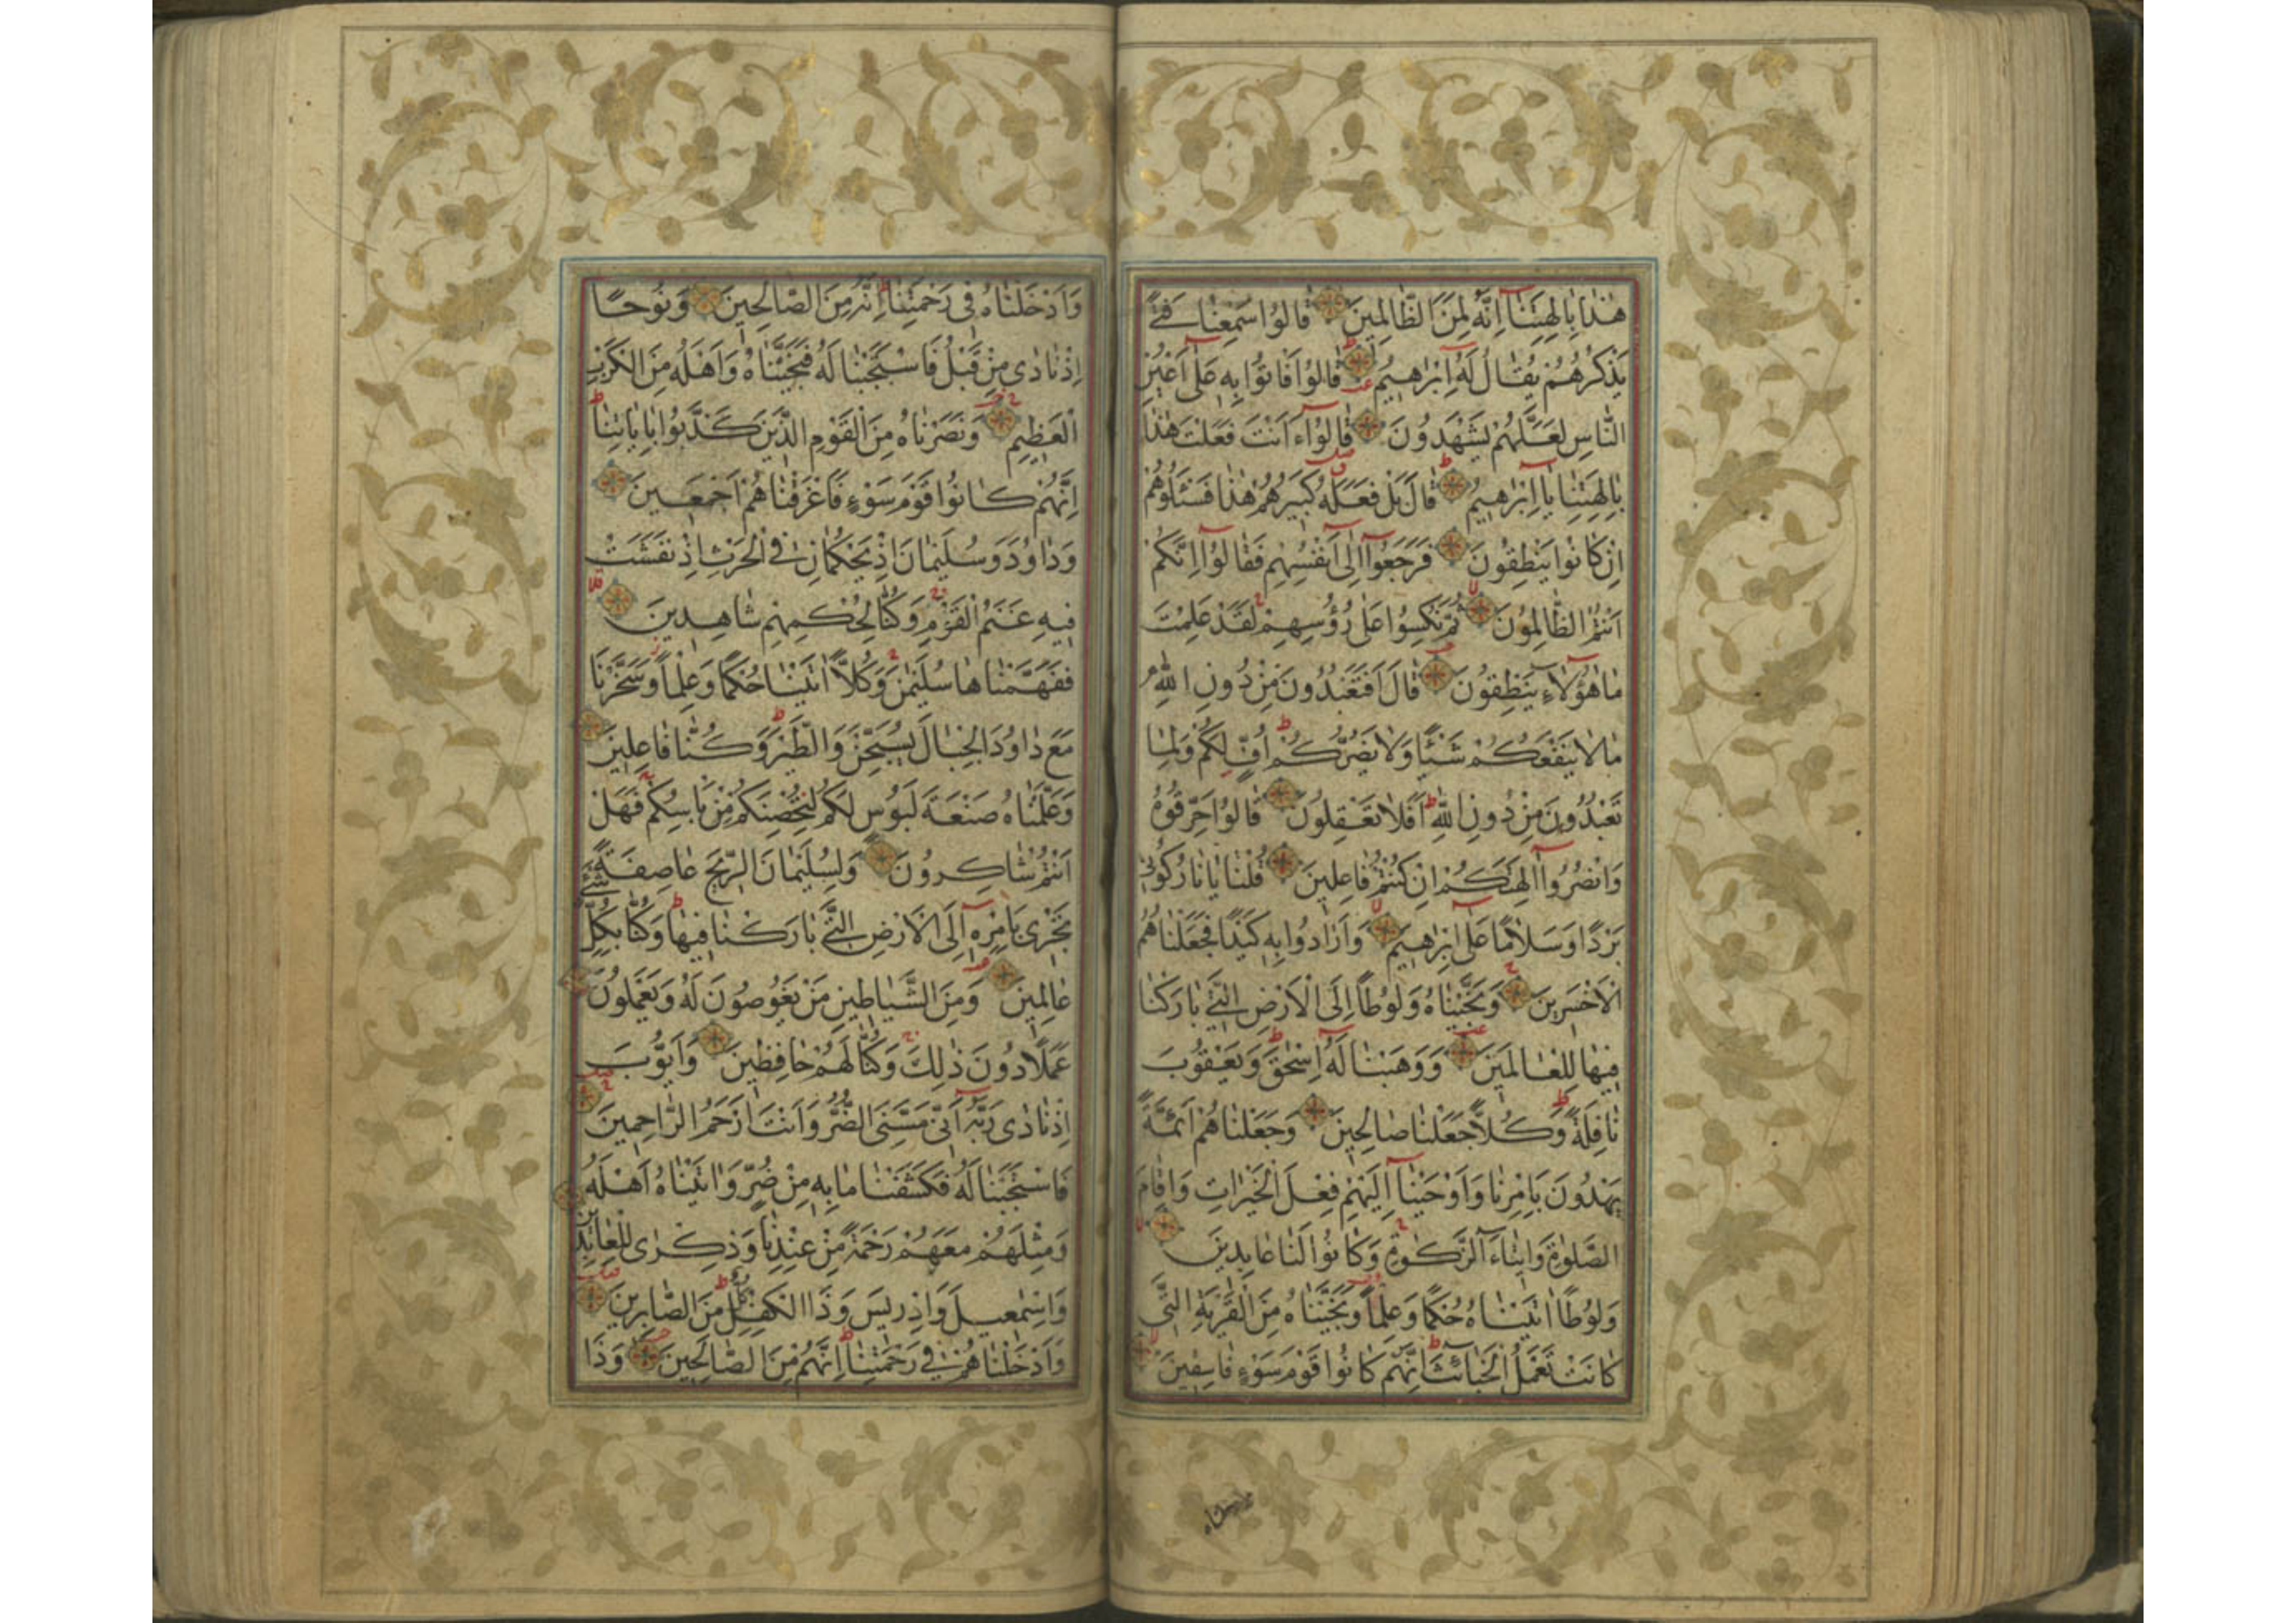 هٰذَا بِاٰلِهَتِنَٓا اِنَّهُ لَمِنَ الظَّالِمِينَ قَالُوا سَمِعْنَا فَتًى
يَذْكُرُهُمْ يُقَالُ لَهُٓ اِبْرٰهِيمُ قَالُوا فَأْتُوا بِهِ عَلٰٓى اَعْيُنِ
النَّاسِ لَعَلَّهُمْ يَشْهَدُونَ قَالُوٓا ءَاَنْتَ فَعَلْتَ هٰذَا
بِاٰلِهَتِنَا يَٓا اِبْرٰهِيمُ قَالَ بَلْ فَعَلَهُ كَبِيرُهُمْ هٰذَا فَسْئَلُوهُمْ
اِنْ كَانُوا يَنْطِقُونَ فَرَجَعُوٓا اِلٰٓى اَنْفُسِهِمْ فَقَالُوٓا اِنَّكُمْ
اَنْتُمُ الظَّالِمُونَ ثُمَّ نُكِسُوا عَلٰى رُؤُسِهِمْ لَقَدْ عَلِمْتَ
مَا هٰٓؤُلَاءِ يَنْطِقُونَ قَالَ اَفَتَعْبُدُونَ مِنْ دُونِ اللّٰهِ
مَا لَا يَنْفَعُكُمْ شَيْئًا وَلَا يَضُرُّكُمْ اُفٍّ لَكُمْ وَلِمَا
تَعْبُدُونَ مِنْ دُونِ اللّٰهِ اَفَلَا تَعْقِلُونَ قَالُوا حَرِّقُوهُ
وَانْصُرُوٓا اٰلِهَتَكُمْ اِنْ كُنْتُمْ فَاعِلِينَ قُلْنَا يَا نَارُ كُونِي
بَرْدًا وَسَلَامًا عَلٰٓى اِبْرٰهِيمَ وَاَرَادُوا بِهِ كَيْدًا فَجَعَلْنَاهُمُ
الْاَخْسَرِينَ وَنَجَّيْنَاهُ وَلُوطًا اِلَى الْاَرْضِ الَّتِي بَارَكْنَا
فِيهَا لِلْعَالَمِينَ وَوَهَبْنَا لَهُٓ اِسْحٰقَ وَيَعْقُوبَ
نَافِلَةً وَكُلًّا جَعَلْنَا صَالِحِينَ وَجَعَلْنَاهُمْ اَئِمَّةً
يَهْدُونَ بِاَمْرِنَا وَاَوْحَيْنَٓا اِلَيْهِمْ فِعْلَ الْخَيْرَاتِ وَاِقَامَ
الصَّلٰوةِ وَاِيتَٓاءَ الزَّكٰوةِ وَكَانُوا لَنَا عَابِدِينَ
وَلُوطًا اٰتَيْنَاهُ حُكْمًا وَعِلْمًا وَنَجَّيْنَاهُ مِنَ الْقَرْيَةِ الَّتِي
كَانَتْ تَعْمَلُ الْخَبَائِثَ اِنَّهُمْ كَانُوا قَوْمَ سَوْءٍ فَاسِقِينَ
وَاَدْخَلْنَاهُ فِي رَحْمَتِنَا اِنَّهُ مِنَ الصَّالِحِينَ وَنُوحًا
اِذْ نَادٰى مِنْ قَبْلُ فَاسْتَجَبْنَا لَهُ فَنَجَّيْنَاهُ وَاَهْلَهُ مِنَ الْكَرْبِ
الْعَظِيمِ وَنَصَرْنَاهُ مِنَ الْقَوْمِ الَّذِينَ كَذَّبُوا بِاٰيَاتِنَا
اِنَّهُمْ كَانُوا قَوْمَ سَوْءٍ فَاَغْرَقْنَاهُمْ اَجْمَعِينَ
وَدَاوُدَ وَسُلَيْمَانَ اِذْ يَحْكُمَانِ فِي الْحَرْثِ اِذْ نَفَشَتْ
فِيهِ غَنَمُ الْقَوْمِ وَكُنَّا لِحُكْمِهِمْ شَاهِدِينَ
فَفَهَّمْنَاهَا سُلَيْمٰنَ وَكُلًّا اٰتَيْنَا حُكْمًا وَعِلْمًا وَسَخَّرْنَا
مَعَ دَاوُدَ الْجِبَالَ يُسَبِّحْنَ وَالطَّيْرَ وَكُنَّا فَاعِلِينَ
وَعَلَّمْنَاهُ صَنْعَةَ لَبُوسٍ لَكُمْ لِتُحْصِنَكُمْ مِنْ بَاْسِكُمْ فَهَلْ
اَنْتُمْ شَاكِرُونَ وَلِسُلَيْمَانَ الرِّيحَ عَاصِفَةً
تَجْرِي بِاَمْرِهِٓ اِلَى الْاَرْضِ الَّتِي بَارَكْنَا فِيهَا وَكُنَّا بِكُلِّ شَيْءٍ
عَالِمِينَ وَمِنَ الشَّيَاطِينِ مَنْ يَغُوصُونَ لَهُ وَيَعْمَلُونَ
عَمَلًا دُونَ ذٰلِكَ وَكُنَّا لَهُمْ حَافِظِينَ وَاَيُّوبَ
اِذْ نَادٰى رَبَّهُٓ اَنِّي مَسَّنِيَ الضُّرُّ وَاَنْتَ اَرْحَمُ الرَّاحِمِينَ
فَاسْتَجَبْنَا لَهُ فَكَشَفْنَا مَا بِهِ مِنْ ضُرٍّ وَاٰتَيْنَاهُ اَهْلَهُ
وَمِثْلَهُمْ مَعَهُمْ رَحْمَةً مِنْ عِنْدِنَا وَذِكْرٰى لِلْعَابِدِينَ
وَاِسْمٰعِيلَ وَاِدْرِيسَ وَذَا الْكِفْلِ كُلٌّ مِنَ الصَّابِرِينَ
وَاَدْخَلْنَاهُمْ فِي رَحْمَتِنَا اِنَّهُمْ مِنَ الصَّالِحِينَ وَذَا